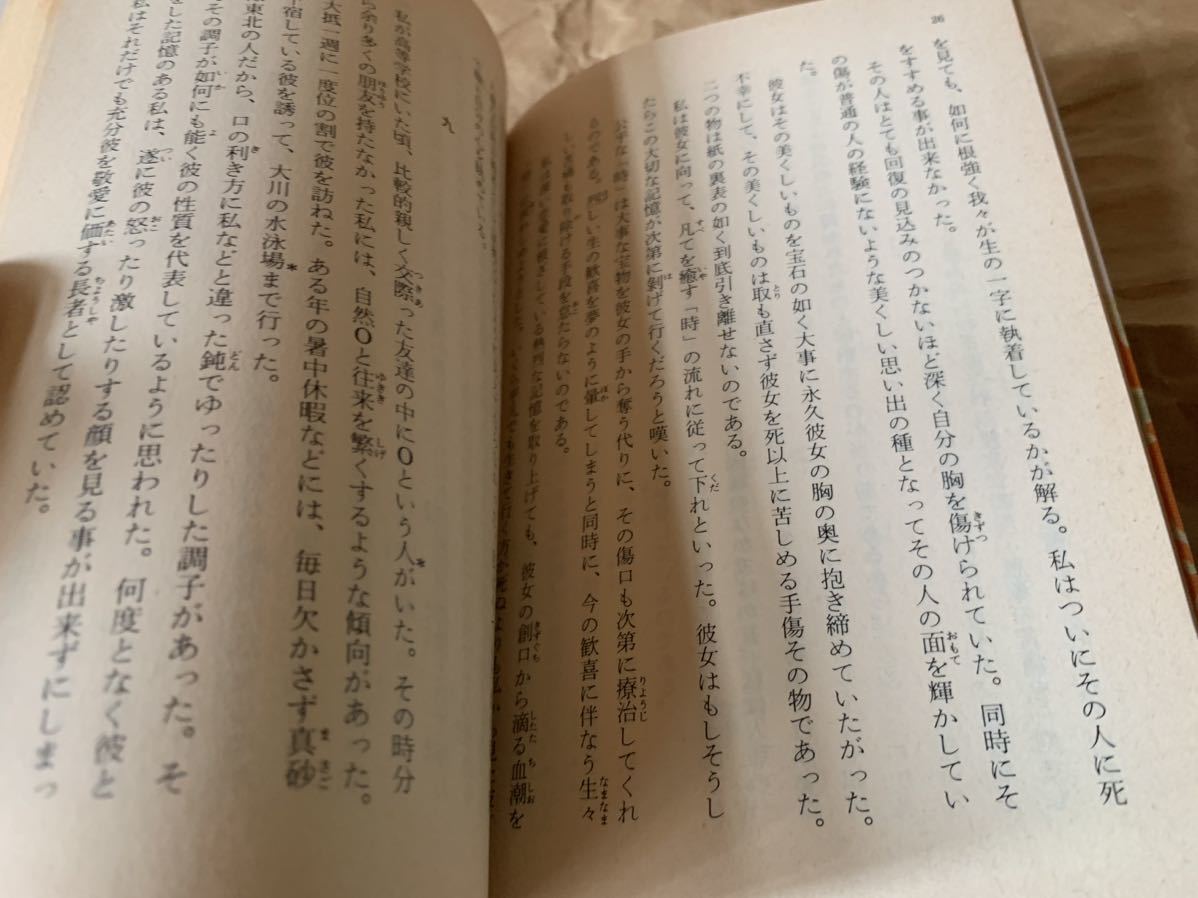 26
を見ても、如何に根強く我々が生の一字に執着しているかが解る。私はついにその人に死
をすすめる事が出来なかった。
その人はとても回復の見込みのつかないほど深く自分の胸を傷けられていた。同時にそ
の傷が普通の人の経験にないような美くしい思い出の種となってその人の面を輝かしてい
た。
彼女はその美くしいものを宝石の如く大事に永久彼女の胸の奥に抱き締めていたがった。
不幸にして、その美くしいものは取も直さず彼女を死以上に苦しめる手傷その物であった。
二つの物は紙の裏表の如く到底引き離せないのである。
私は彼女に向って、凡てを癒す「時」の流れに従って下れといった。彼女はもしそうし
たらこの大切な記憶が次第に剝げて行くだろうと嘆いた。
公平な「時」は大事な宝物を彼女の手から奪う代りに、その傷口も次第に療治してくれ
るのである。烈しい生の歓喜を夢のように暈してしまうと同時に、今の歓喜に伴なう生々
しい苦痛も取り除ける手段を怠たらないのである。
私は深い恋愛に根ざしている熱烈な記憶を取り上げても、彼女の創口から滴る血潮を
九
私が高等学校にいた頃、比較的親しく交際った友達の中にOという人*がいた。その時分
ら余り多くの朋友を持たなかった私には、自然Oと往来を繁くするような傾向があった。
大抵一週に一度位の割で彼を訪ねた。ある年の暑中休暇などには、毎日欠かさず真砂
宿している彼を誘って、大川の水泳場*まで行った。
東北の人だから、口の利き方に私などと違った鈍でゆったりした調子があった。そ
その調子が如何にも能く彼の性質を代表しているように思われた。何度となく彼と
をした記憶のある私は、遂に彼の怒ったり激したりする顔を見る事が出来ずにしまっ
私はそれだけでも充分彼を敬愛に価する長者として認めていた。